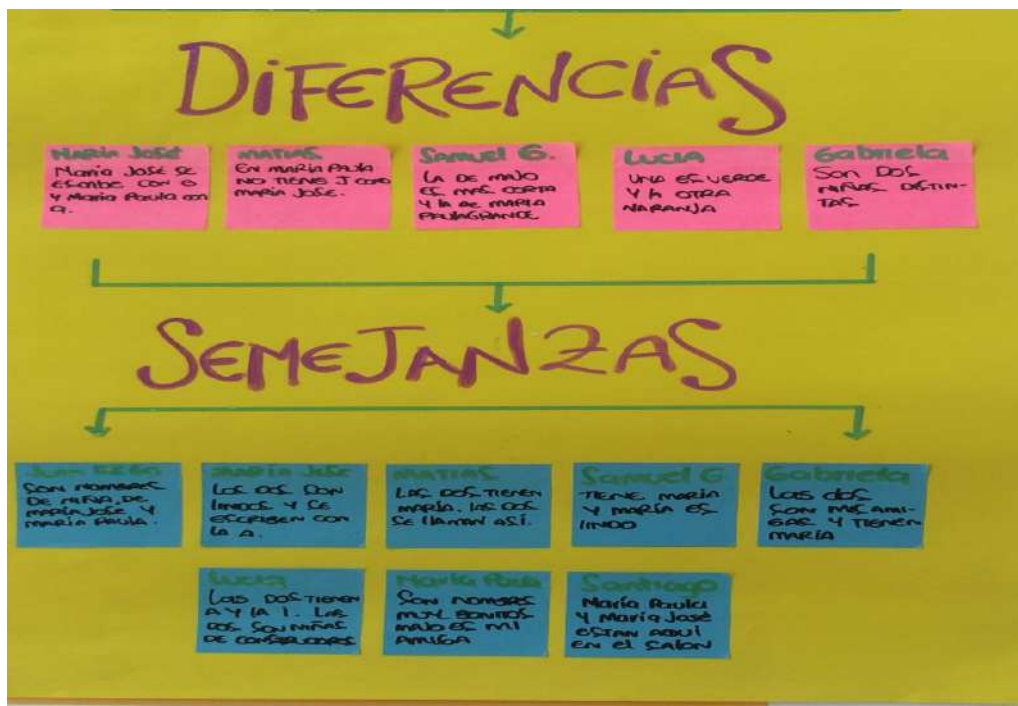 DIFERENCIAS
María José
María José se
escribe con o
y María Paula con
a.
MATIAS
EN MARÍA PAULA
NO TIENE J COMO
MARÍA JOSE.
Samuel G.
LA DE MAJO
ES MÁS CORTA
Y LA DE MARIA
PAULA GRANDE
LUCIA
UNA ES VERDE
Y LA OTRA
NARANJA
Gabriela
SON DOS
NIÑAS DISTIN-
TAS
SEMEJANZAS
Juan
SON NOMBRES
DE NIÑA, DE
MARÍA JOSE Y
MARÍA PAULA.
MARÍA JOSE
LOS DOS SON
LINDOS Y SE
ESCRIBEN CON
LA A.
MATIAS
LAS DOS TIENEN
MARÍA. LAS DOS
SE LLAMAN ASÍ.
Samuel G
TIENE MARÍA
Y MARÍA ES
LINDO
Gabriela
Las dos
SON MIS AMI-
GAS Y TIENEN
MARÍA
LUCIA
LAS DOS TIENEN
A Y LA I. LAS
DOS SON NIÑAS
DE CONSTRUCTORES
María Paula
SON NOMBRES
MUY BONITOS
MAJO ES MI
AMIGA
Santiago
María Paula
Y María José
ESTAN AQUÍ
EN el SALON